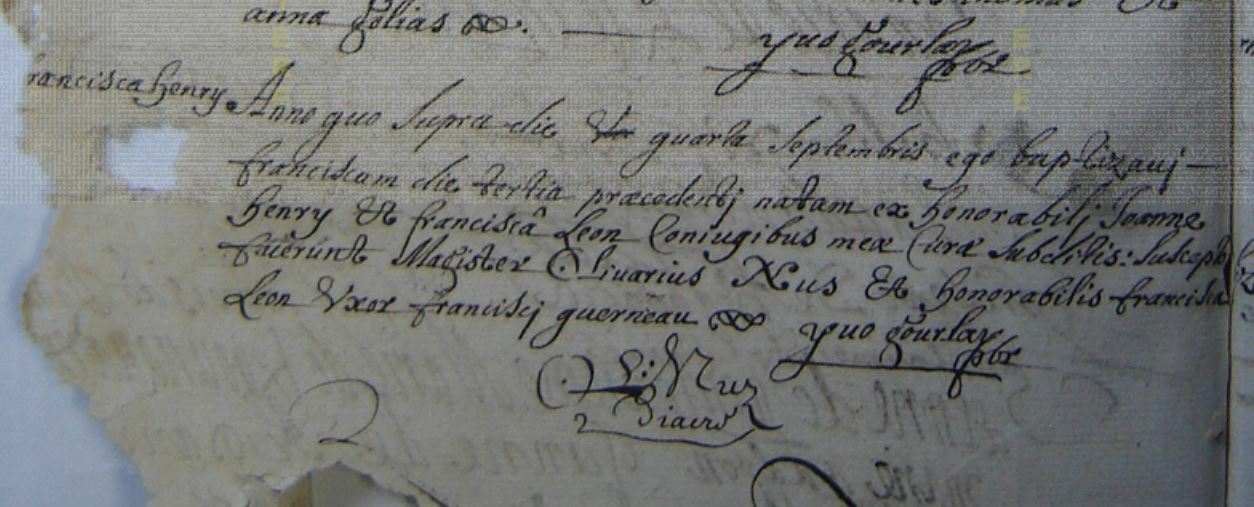 anna golias
yuo gourlay pbr
francisca henry
Anno quo supra die quarta Septembris ego baptizauj
franciscam die tertia præcedentj natam ex honorabilj Joanne
henry Et franciscâ Leon Coniugibus meæ Curæ Subditis: Suscept
fuerunt Magister Oliuarius Nus Et honorabilis francisca
Leon Vxor franciscj guerneau yuo gourlay pbr
O: Nuz
Diacre